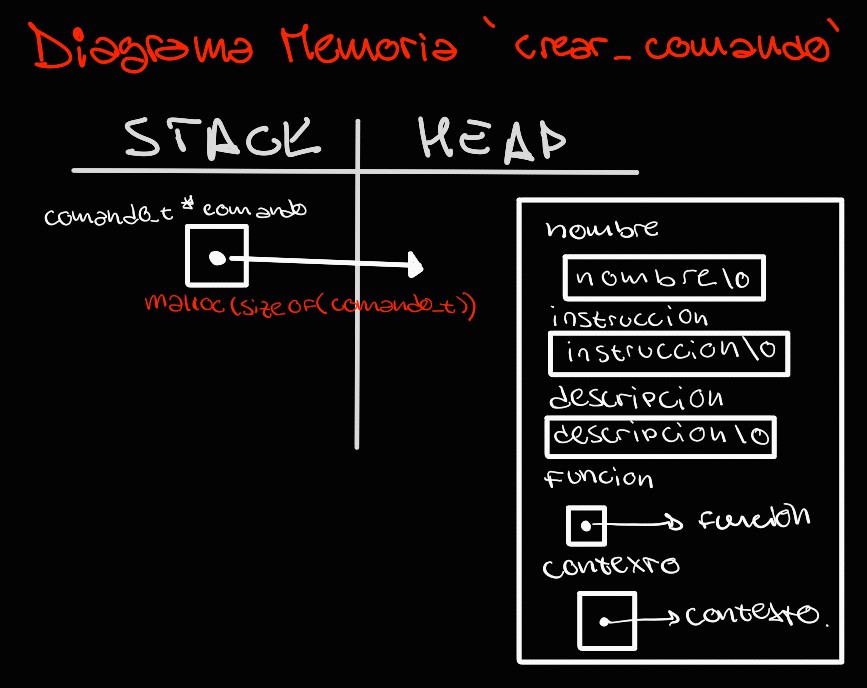 Diagrama Memoria `crear_comando`
STACK HEAP
comando_t * comando
malloc(sizeof(comando_t))
nombre
nombre\0
instruccion
instruccion\0
descripcion
descripcion\0
funcion
funcion
contexto
contexto.